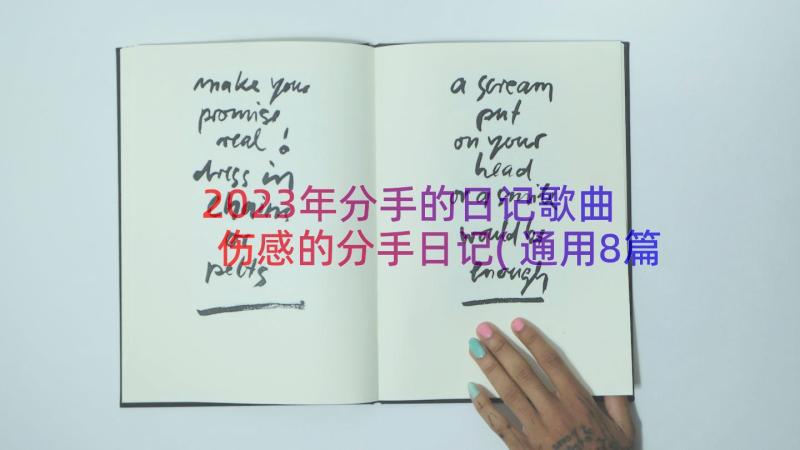 make your
promise
real!
dress in
pelts
a scream
put
on your
head
or a smile
would be
enough
2023年分手的日记歌曲
伤感的分手日记(通用8篇